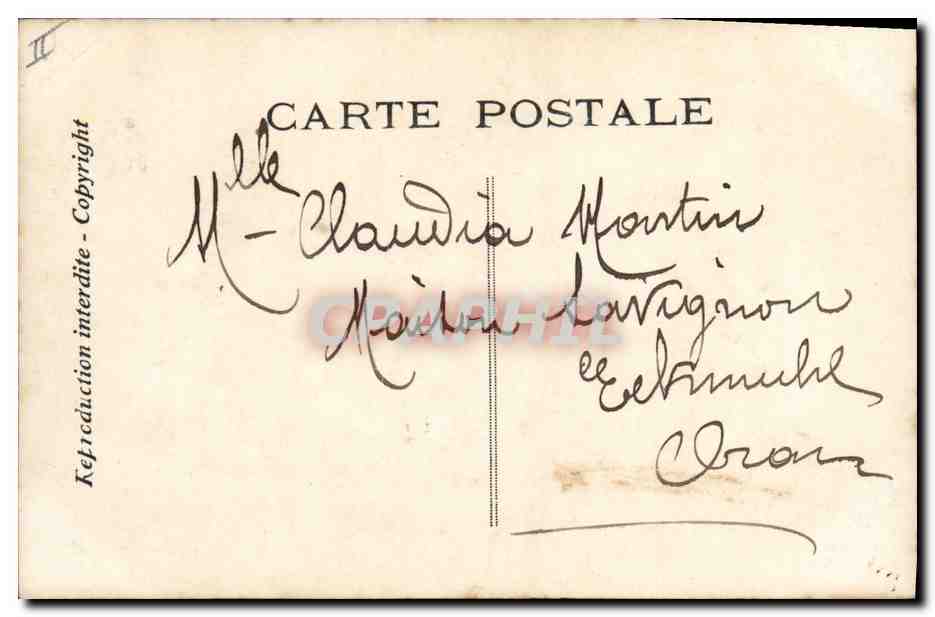 II
CARTE POSTALE
Reproduction interdite - Copyright
Mlle - Claudia Martin
Maison Lavignon
Eckmuhl
Oran
CPAPHIL